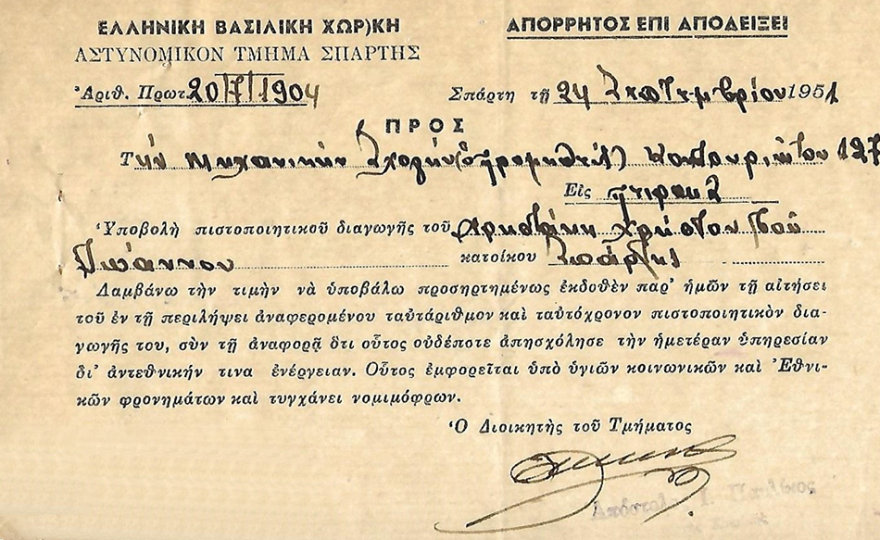 ΕΛΛΗΝΙΚΗ ΒΑΣΙΛΙΚΗ ΧΩΡ)ΚΗ
ΑΠΟΡΡΗΤΟΣ ΕΠΙ ΑΠΟΔΕΙΞΕΙ
ΑΣΤΥΝΟΜΙΚΟΝ ΤΜΗΜΑ ΣΠΑΡΤΗΣ
Ἀριθ. Πρωτ. 20/7/1904
Σπάρτη τῇ 24 Σεπτεμβρίου 1951
ΠΡΟΣ
Τὴν Μηχανικὴν Σχολὴν 127
Εἰς Πειραιᾶ
Ὑποβολὴ πιστοποιητικοῦ διαγωγῆς τοῦ Χρήστου τοῦ
Ἰωάννου κατοίκου Σπάρτης
Λαμβάνω τὴν τιμὴν νὰ ὑποβάλω προσηρτημένως ἐκδοθὲν παρ' ἡμῶν τῇ αἰτήσει
τοῦ ἐν τῇ περιλήψει ἀναφερομένου ταὐτάριθμον καὶ ταὐτόχρονον πιστοποιητικὸν δια-
γωγῆς του, σὺν τῇ ἀναφορᾷ ὅτι οὗτος οὐδέποτε ἀπησχόλησε τὴν ἡμετέραν ὑπηρεσίαν
δι' ἀντεθνικήν τινα ἐνέργειαν. Οὗτος ἐμφορεῖται ὑπὸ ὑγιῶν κοινωνικῶν καὶ Ἐθνι-
κῶν φρονημάτων καὶ τυγχάνει νομιμόφρων.
Ὁ Διοικητὴς τοῦ Τμήματος